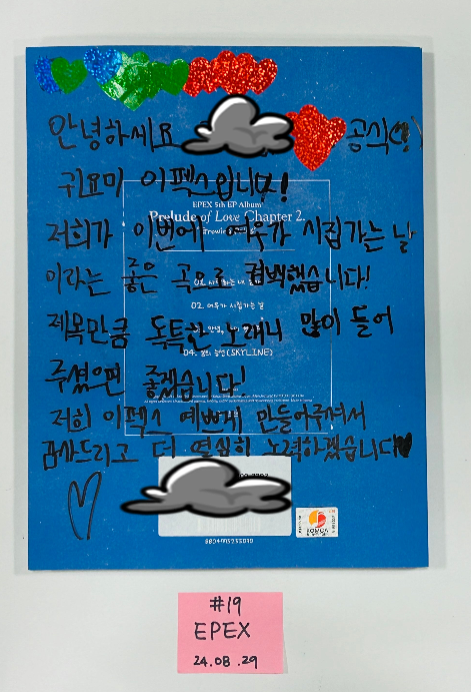 안녕하세요 공식(!)
귀요미 이펙스입니다!
EPEX 5th EP Album
Prelude of Love Chapter 2.
저희가 이번에 여우가 시집가는 날
이라는 좋은 곡으로 컴백했습니다!
02. 여우가 시집가는 날
제목만큼 독특한 노래니 많이 들어
04. (SKYLINE)
주셨으면 좋겠습니다!
저희 이펙스 예쁘게 만들어주셔서
감사드리고 더 열심히 노력하겠습니다
8804775255070
#19
EPEX
24.08.29